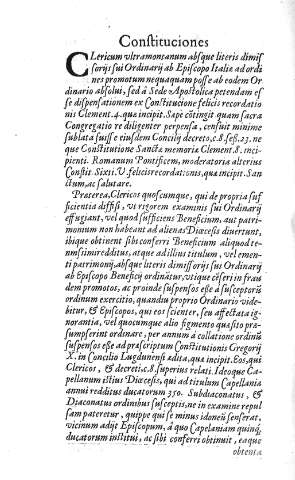 Constituciones
Clericum vltramontanum absque literis dimis
sorijs sui Ordinarij ab Episcopo Italiæ ad ordi
nes promotum nequaquam posse ab eodem Or
dinario absolui, sed à Sede Apostolica petendam es
se dispensationem ex Constitutione felicis recordatio
nis Clement. 4. quæ incipit. Sæpe cōtingit quam sacra
Congregatio re diligenter perpensa, censuit minime
sublata fuisse eiusdem Concilij decreto, c. 8. sess. 23. ne
que Constitutione Sanctæ memoriæ Clement. 8. inci
pienti. Romanum Pontificem, moderatoria alterius
Constit. Sixti V. felic. recordationis, quæ incipit. San
ctum, ac salutare.
Præterea, Clericos quoscumque, qui de propria suf
ficientia diffisi, vt rigorem examinis sui Ordinarij
effugiant, vel quod sufficiens Beneficium, aut patri-
monium non habeant ad alienas Diœcesis diuertunt,
ibique obtinent sibi conferri Beneficium aliquod te-
nuissimi redditus, atque ad illius titulum, vel emen-
ti patrimonij, absque literis dimissorijs sui Ordinarij
ab Episcopo Beneficij ordinātur, vtique cēseri in frau
dem promotos, ac proinde suspensos eße à susceptorū
ordinum exercitio, quandiu proprio Ordinario vide-
bitur, & Episcopos, qui eos scienter, seu affectata ig-
norantia, vel quocumque alio figmento quæsito præ-
sumpserint ordinare, per annum à collatione ordinū
suspensos eße ad præscriptum Constitutionis Gregorij
X. in Concilio Lugdunensi ædita, quæ incipit. Eos, qui
Clericos, & decreti. c. 8. superius relati. Ideoque Ca-
pellanum istius Diœcesis, qui ad titulum Capellaniæ
annui redditus ducatorum 350. Subdiaconatus, &
Diaconatus ordinibus susceptis, ne in examine repul
sam pateretur, quippe qui se minus idoneū senserat,
vicinum adijt Episcopum, à quo Capellaniam quinq.
ducatorum institui, ac sibi conferri obtinuit, eaque
obtenta